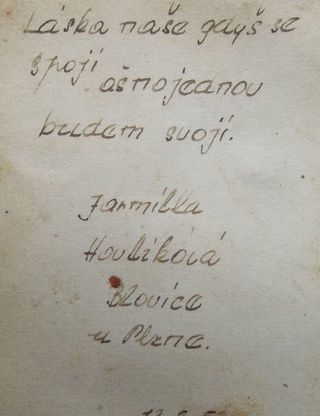 Láska naše gdyš se
spojí
ašnojednou
budem svoji.
Jarmilka
Havlíková
Blovice
u Plzne.